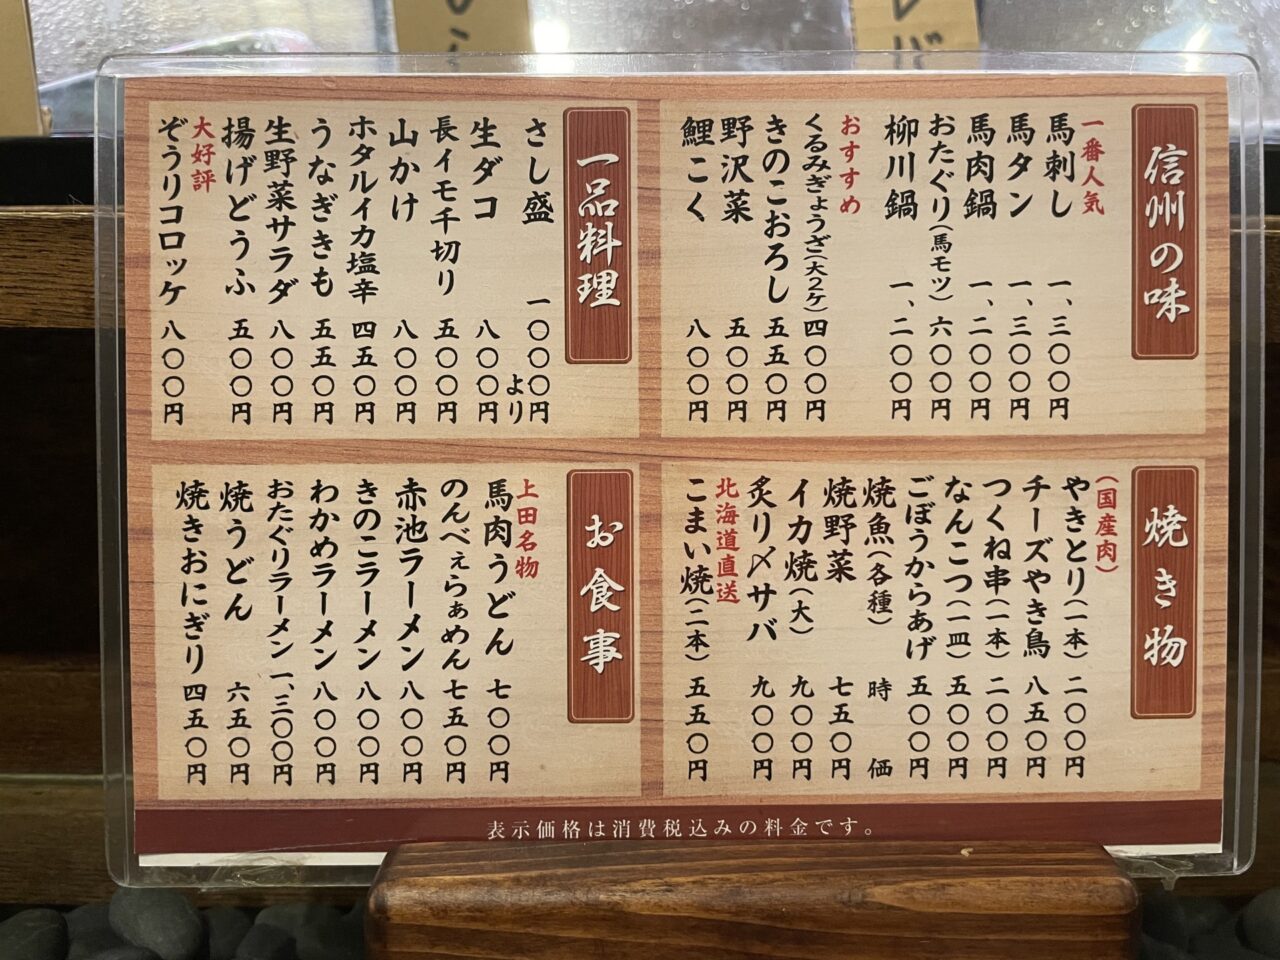 信州の味
一番人気
馬刺し 一、三〇〇円
馬タン 一、三〇〇円
馬肉鍋 一、二〇〇円
おたぐり(馬モツ) 六〇〇円
柳川鍋 一、二〇〇円
おすすめ
くるみぎょうざ(大2ケ) 四〇〇円
きのこおろし 五五〇円
野沢菜 五〇〇円
鯉こく 八〇〇円
一品料理
さし盛 一〇〇〇円より
生ダコ 八〇〇円
長イモ千切り 五〇〇円
山かけ 八〇〇円
ホタルイカ塩辛 四五〇円
うなぎきも 五五〇円
生野菜サラダ 八〇〇円
揚げどうふ 五〇〇円
大好評
ぞうりコロッケ 八〇〇円
焼き物
(国産肉)
やきとり(一本) 二〇〇円
チーズやき鳥 八五〇円
つくね串(一本) 二〇〇円
なんこつ(一皿) 五〇〇円
ごぼうからあげ 五〇〇円
焼魚(各種) 時価
焼野菜 七五〇円
イカ焼(大) 九〇〇円
炙り〆サバ 九〇〇円
北海道直送
こまい焼(二本) 五五〇円
お食事
上田名物
馬肉うどん 七〇〇円
のんべぇらぁめん 七五〇円
赤池ラーメン 八〇〇円
きのこラーメン 八〇〇円
わかめラーメン 八〇〇円
おたぐりラーメン 一、三〇〇円
焼うどん 六五〇円
焼きおにぎり 四五〇円
表示価格は消費税込みの料金です。